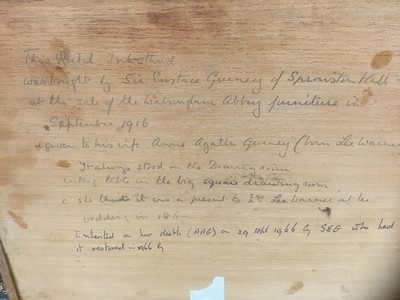 This Inkstand
was bought by Sir Eustace Gurney of Sprowston Hall
at the sale of the Walsingham Abbey furniture in
September 1916
& given to his wife Anne Agatha Gurney (born Lee Warner
It always stood on the Drawing room
writing table in the big square drawing room
she thinks it was a present to Lee Warner at her
wedding in 186
Inherited on her death (AAG) on 29 1966 by SEG who had
it restored in 1966
1